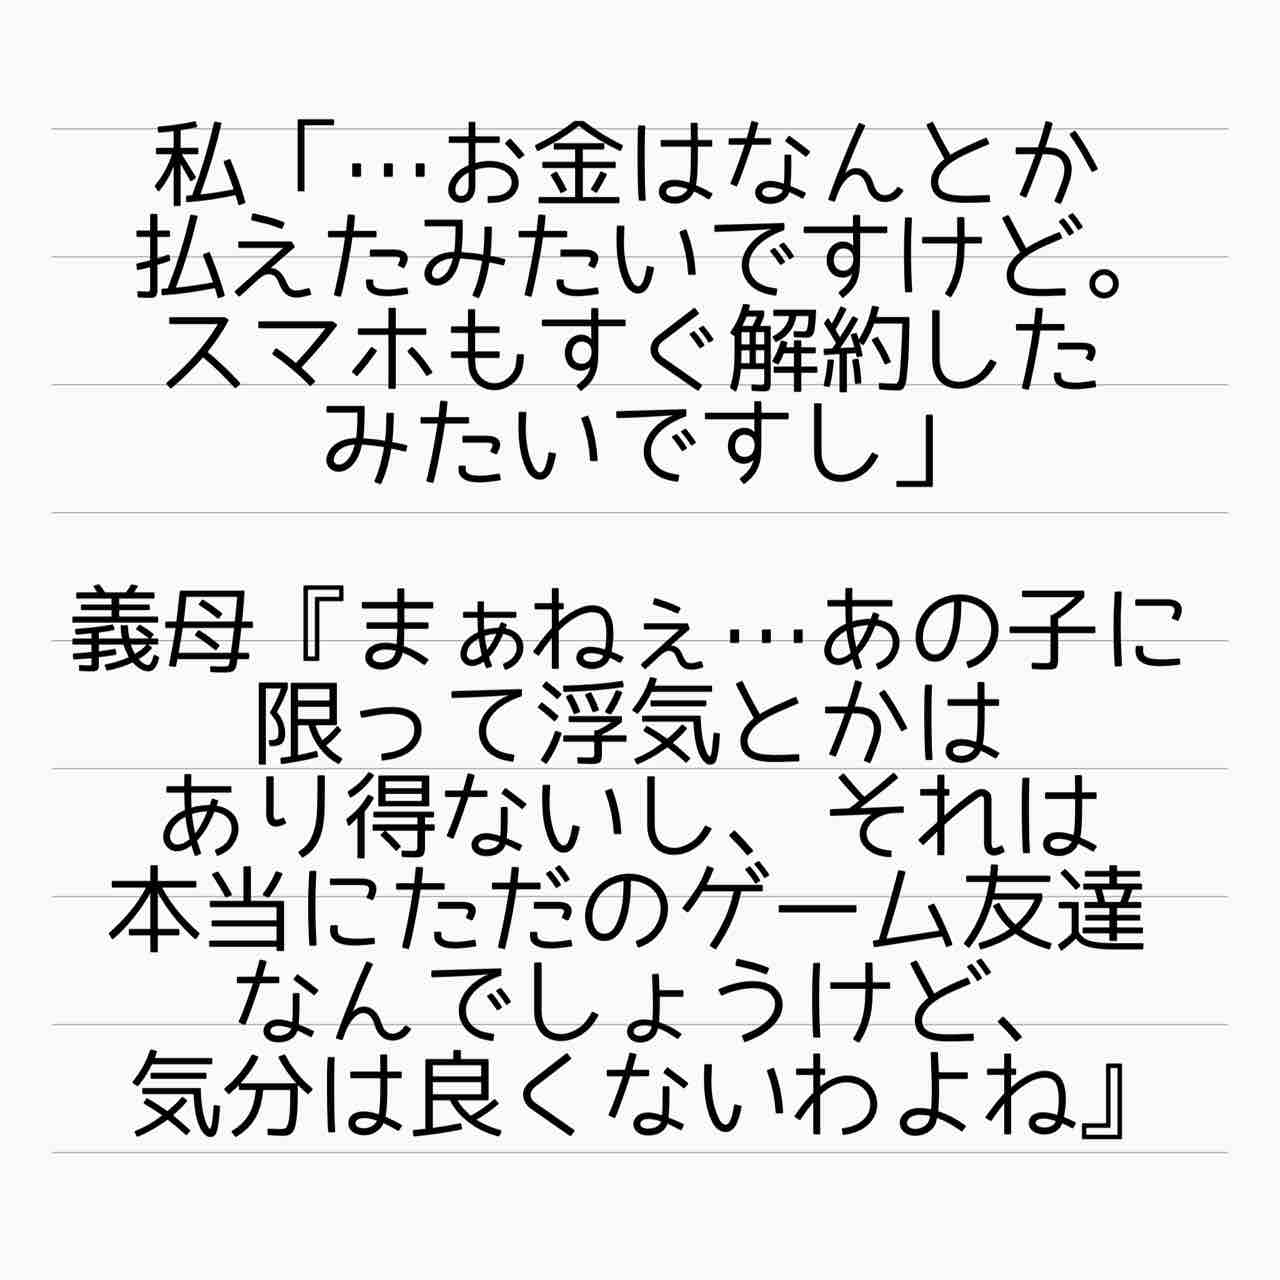 私「…お金はなんとか
払えたみたいですけど。
スマホもすぐ解約した
みたいですし」
義母『まぁねぇ…あの子に
限って浮気とかは
あり得ないし、それは
本当にただのゲーム友達
なんでしょうけど、
気分は良くないわよね』